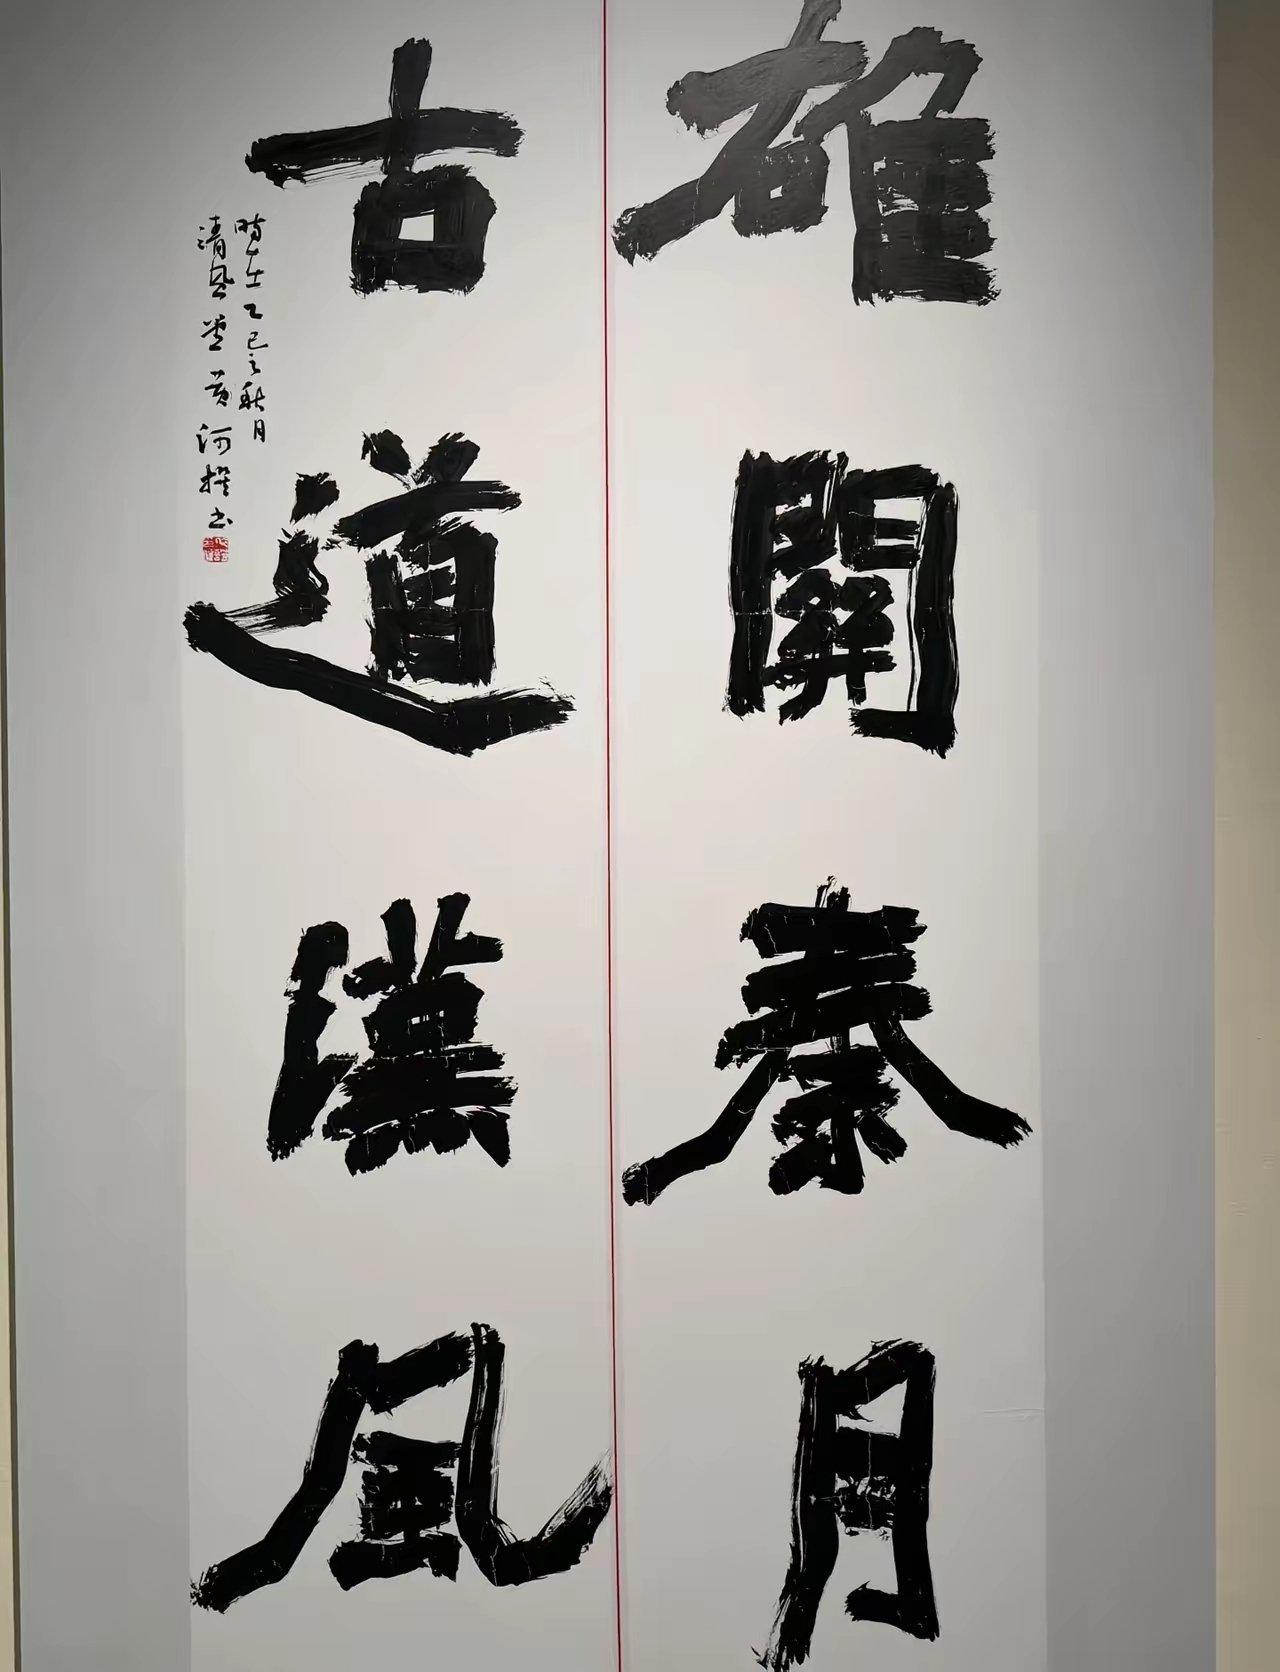 雄關秦月
古道漢風
時在乙巳之秋月
清風堂黄河撰书